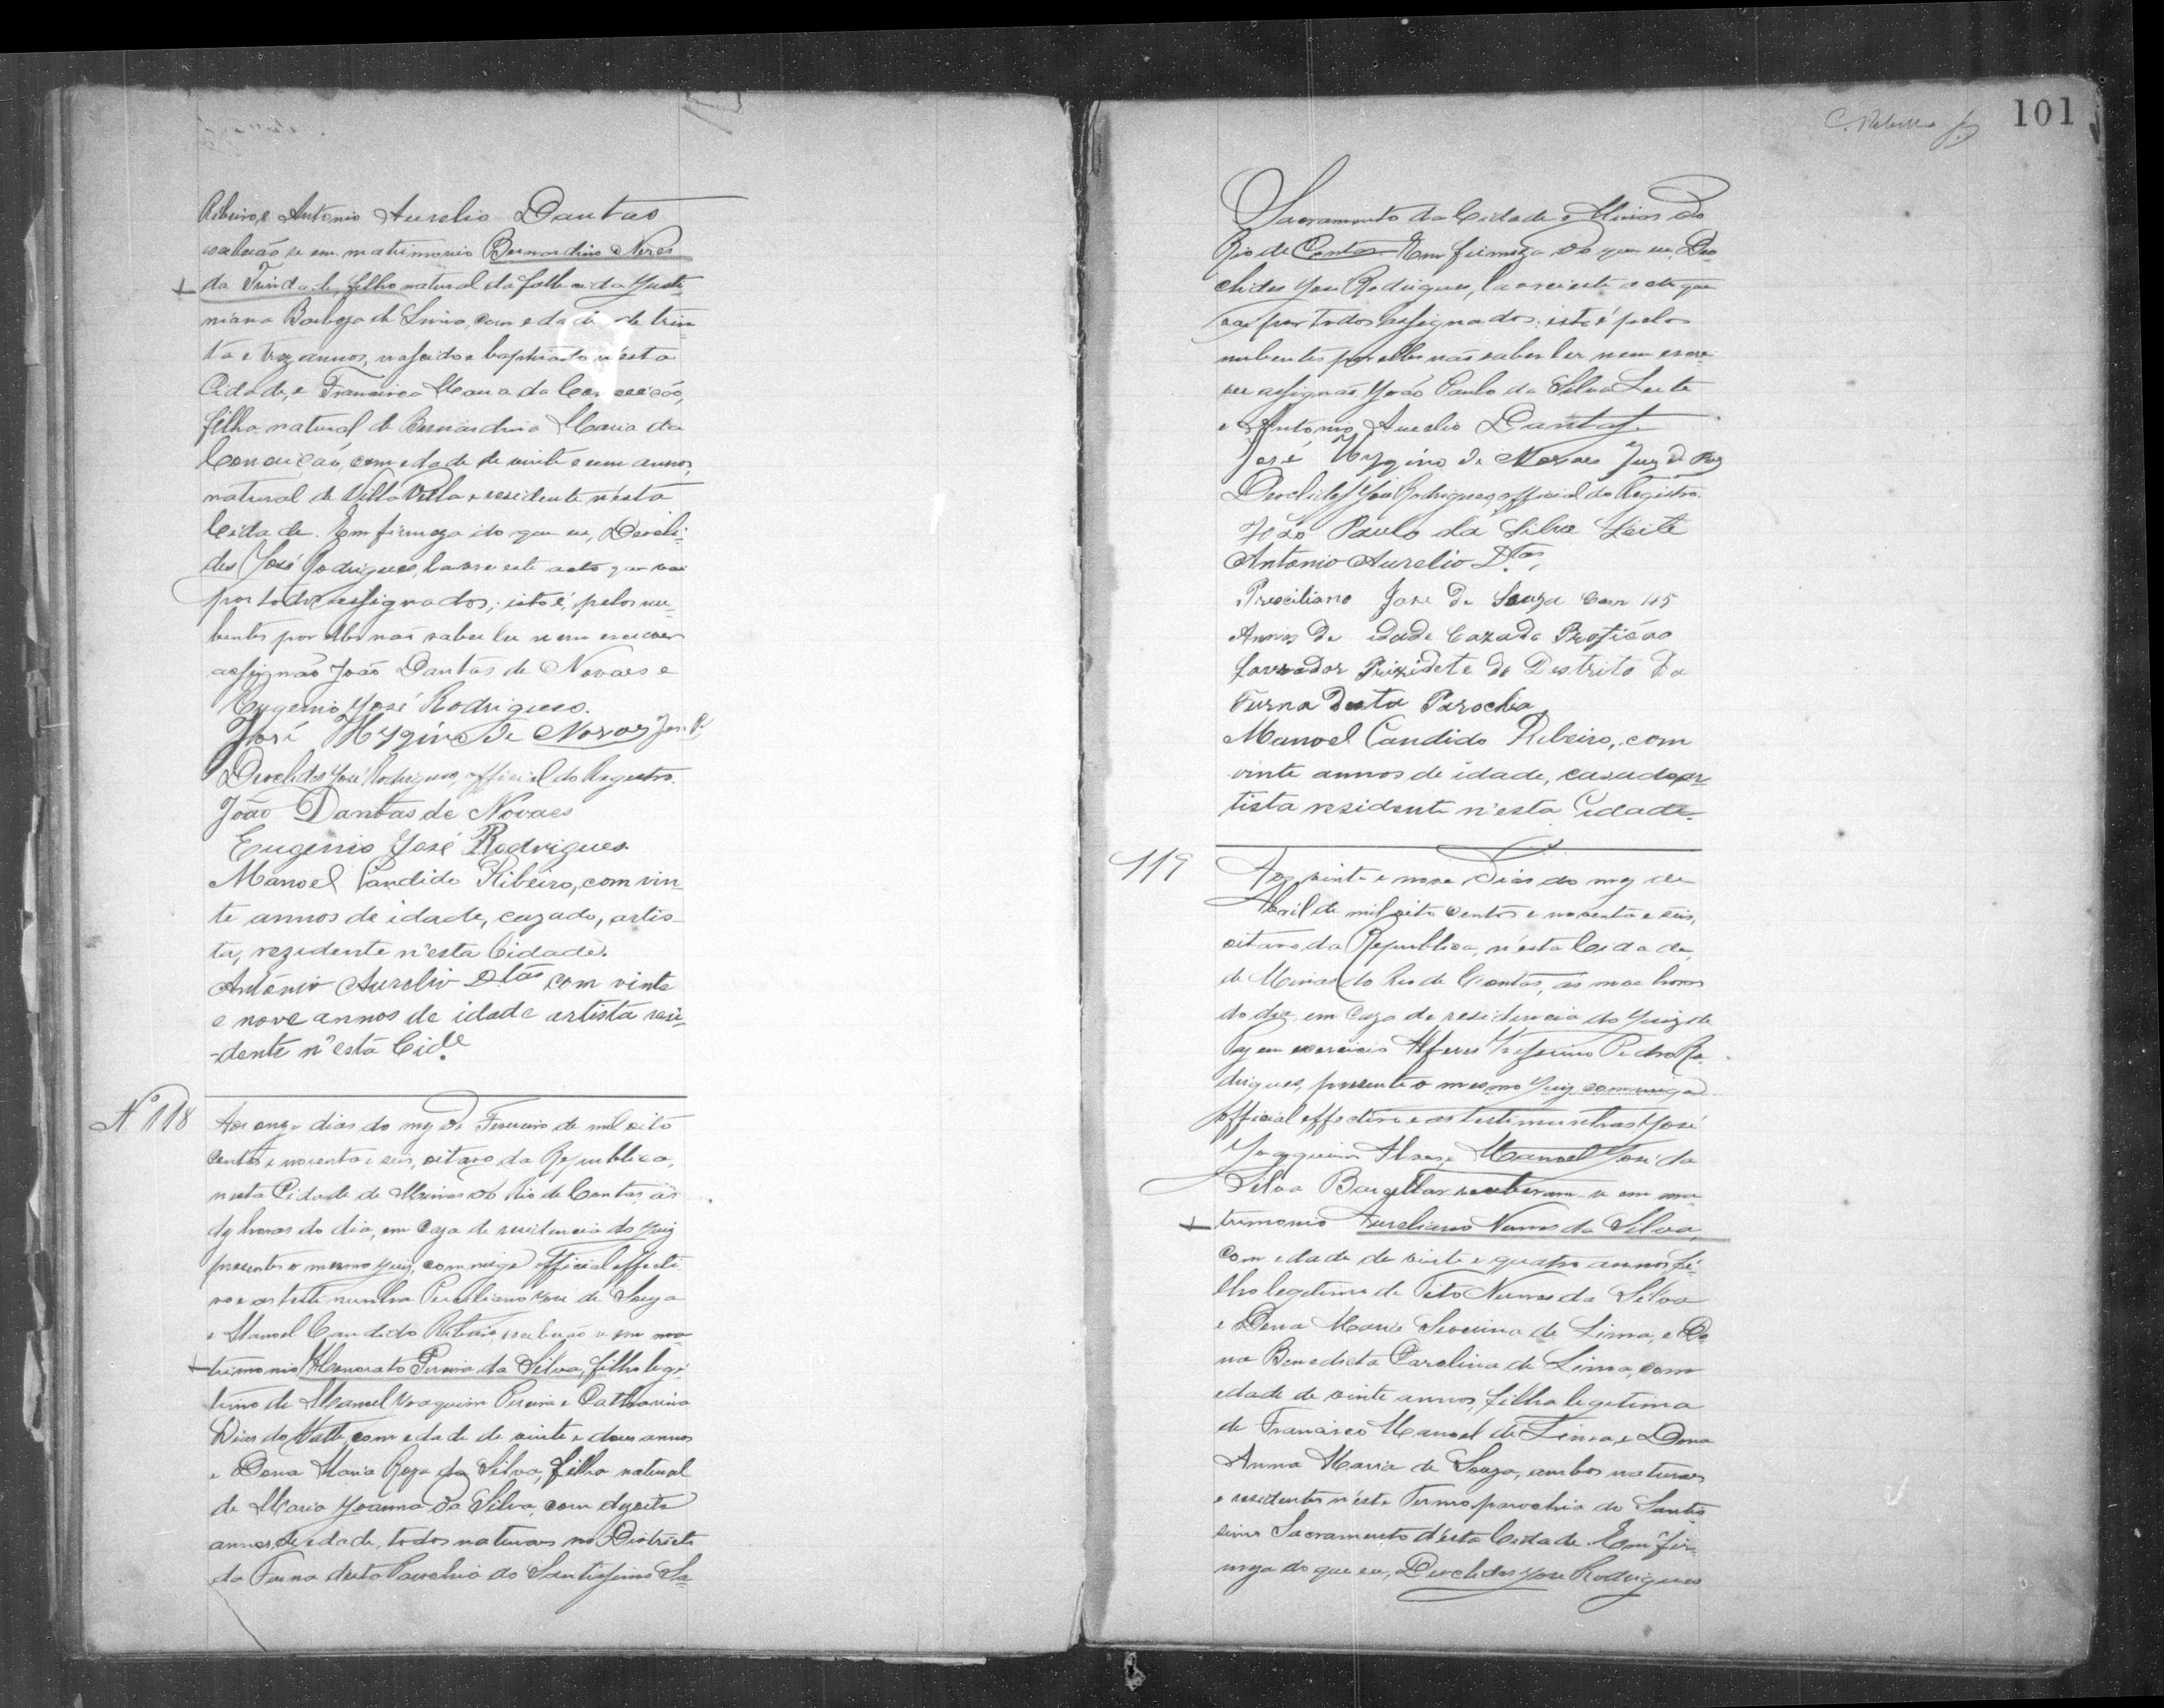 Ribeiro, e Antonio Aurelio Dantas
receberão se em matrimonio Bernardino Neres
da Trindade, filho natural da fallecida Justi-
niana Barboza de Lima, com edade de trin
ta e trez annos, nascido e baptisado n'esta
Cidade, e Francisca Maria da Conceição,
filha natural de Bernardina Maria da
Conceição, com edade de vinte e um annos,
natural de Villa Vella e residente n'esta
Cidade. Em firmeza do que eu, Diocli-
des José Rodrigues, lavrei este acto que vai
por todos assignados; isto é, pelos nu-
bentes por elles não saber ler nem escrever
assignão João Dantas de Novaes e
Eugenio José Rodrigues.
José Hygino de Novaes Juiz P.
Dioclides José Rodrigues, official do Registro.
João Dantas de Novaes
Eugenio José Rodrigues
Manoel Candido Ribeiro, com vin-
te annos de idade, cazado, artis-
ta, rezidente n'esta Cidade.
Antônio Aurelio Dtas com vinte
e nove annos de idade artista resi-
-dente n'esta Cide.
Nº 118
Aos onze dias do mez de Fevereiro de mil oito
centos e noventa e seis, oitavo da Republica,
nesta Cidade de Minas do Rio de Contas, as
dez horas do dia, em caza de residencia do Juiz
presentes o mesmo Juiz, commigo official effecti
vo e as testimunhas Preciliano José de Souza
e Manoel Candido Ribeiro, receberão se em ma
trimonio Honorato Pereira da Silva, filho legi-
timo de Manuel Joaquim Pereira e Catharina
Dias do Valle, com edade de vinte e dous annos
e Dona Maria Roza da Silva, filha natural
de Maria Joanna da Silva, com dezoito
annos de edade, todos naturaes no Districto
da Furna desta Parochia do Santissimo Sa-
C. Rabello
101
Sacramento da Cidade e Minas do
Rio de Contas. Em firmeza do que eu, Dio
clides José Rodrigues, lavrei este acto que
vai por todos assignados; isto é pelos
nubentes por elles não saber ler nem escre-
ver assignão João Paulo da Silva Leite
e Antonio Aurelio Dantas.
José Hygino de Novaes Juiz de Paz
Dioclides José Rodrigues, official do Registro.
João Paulo da Silva Leite
Antonio Aurelio Dtas,
Preciliano Jose de Souza Com 45
Annos de idade Cazado Profisão
Lavrador Rizidete do Destrito da
Furna Desta Parochia
Manoel Candido Ribeiro, com
vinte annos de idade, casado ar-
tista residente n'esta Cidade.
119
Aos vinte e nove Dias do mez de
Abril de mil oito centos e noventa e seis,
oitavo da Republica, n'esta Cidade,
de Minas do Rio de Contas, as nove horas
do dia, em Caza de residencia do Juiz de
Paz em exercicio Alferes Pedro Ro-
drigues, presente o mesmo Juiz commigo
official effectivo e as testimunhas José
Joaquim Alves, e Manoel José da
Silva receberam-se em ma
trimonio Aureliano Nunes da Silva,
com edade de vinte e quatro annos, fi-
lho legitimo de Tito Nunes da Silva
e Dona Maria Severina de Lima, e Do
na Benedicta Carolina de Lima, com
edade de vinte annos, filha legitima
de Francisco Manoel de Lima, e Dona
Anna Maria de Souza, ambos naturaes
e residentes n'este Termo parochia do Santis
simo Sacramento d'esta Cidade. Em fir-
meza do que eu, Dioclides José Rodrigues